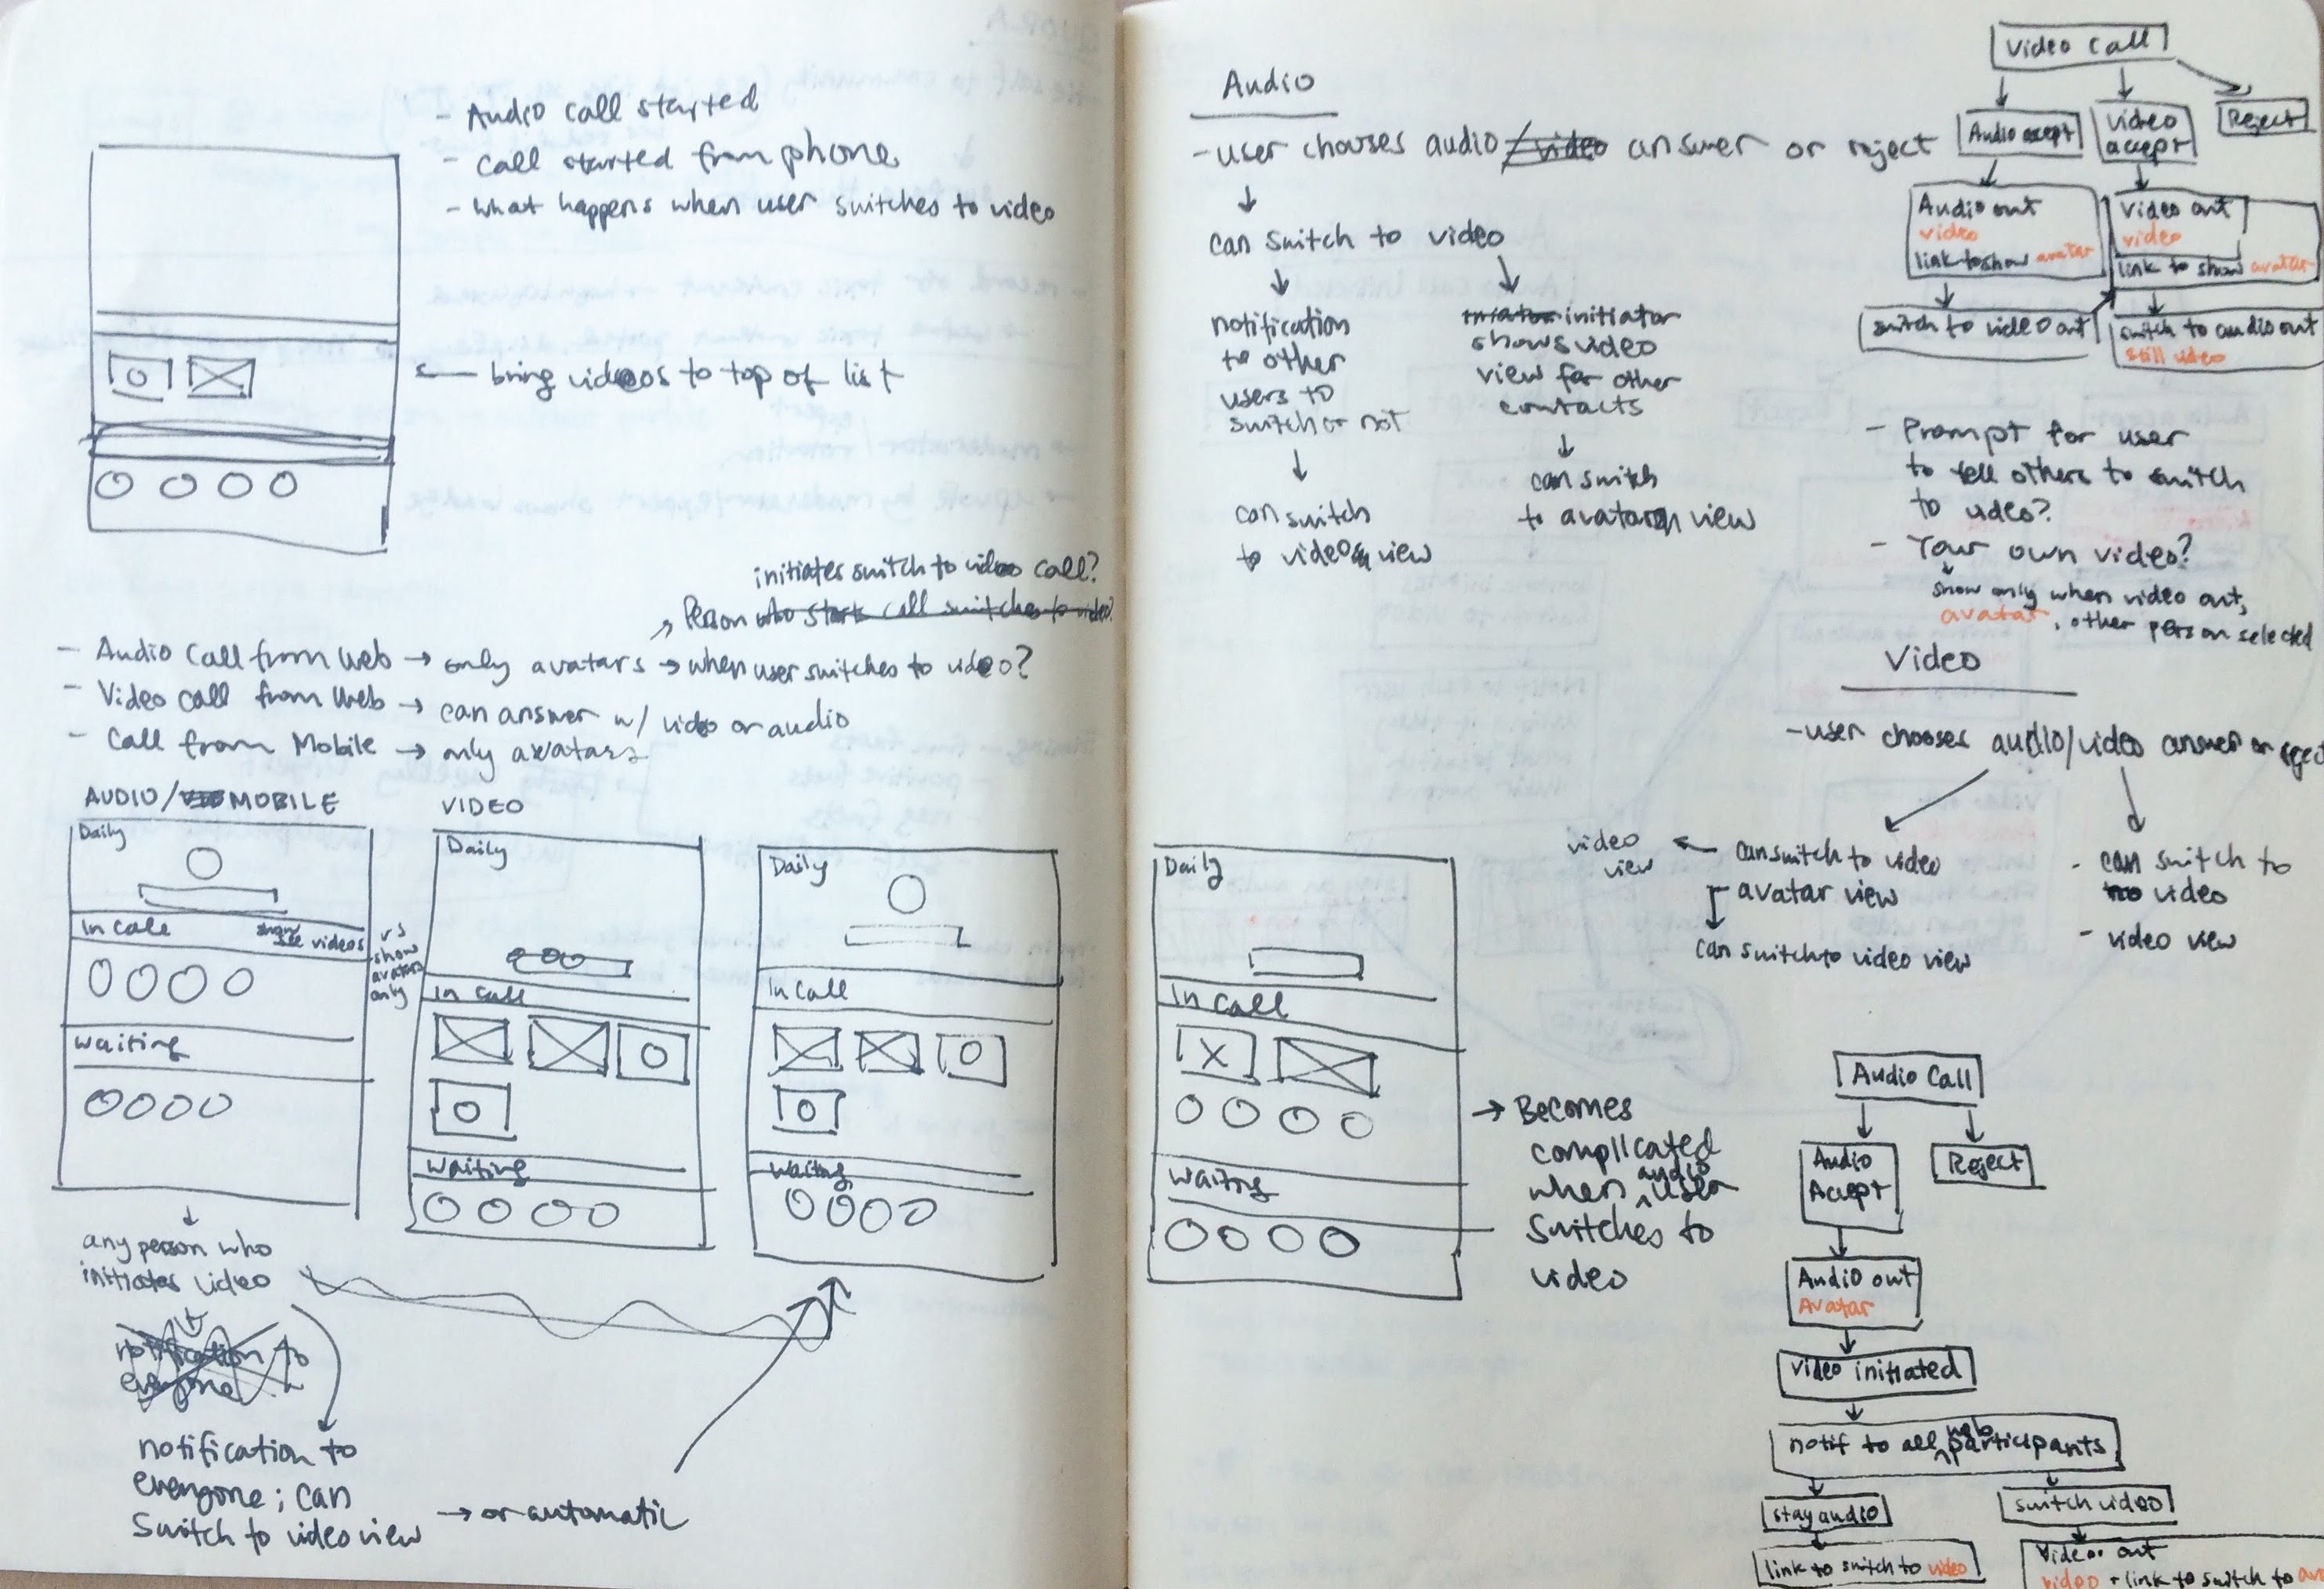 - Audio call started
- call started from phone
- what happens when user switches to video
← bring videos to top of list
initiates switch to video call?
↗ Person who starts call switches to video?
- Audio call from web → only avatars → when user switches to video?
- Video call from Web → can answer w/ video or audio
- Call from Mobile → only avatars
AUDIO/ MOBILE
Daily
In call
show
see videos
vs
show
avatars
only
Waiting
VIDEO
Daily
In call
Waiting
Daily
In call
Waiting
any person who
initiates video
notification to
everyone
notification to
everyone; can
switch to video view
→ or automatic
Audio
- user chooses audio /video answer or reject
can switch to video
notification
to other
users to
switch or not
can switch
to video view
initiator
shows video
view for other
contacts
can switch
to avatar view
Video call
Audio accept
Video
accept
Reject
Audio out
video
link to show avatar
Video out
video
link to show avatar
switch to video out
switch to audio out
still video
- Prompt for user
to tell others to switch
to video?
- Your own video?
show only when video out,
avatar, other person selected
Video
- user chooses audio/video answer or reject
video
view
← can switch to video
avatar view
can switch to video view
- can switch to
video
- video view
Daily
In call
Waiting
→ Becomes
complicated
when audio user
switches to
video
Audio Call
Audio
Accept
Reject
Audio out
Avatar
video initiated
notif to all web participants
stay audio
switch video
link to switch to video
Video out
video + link to switch to